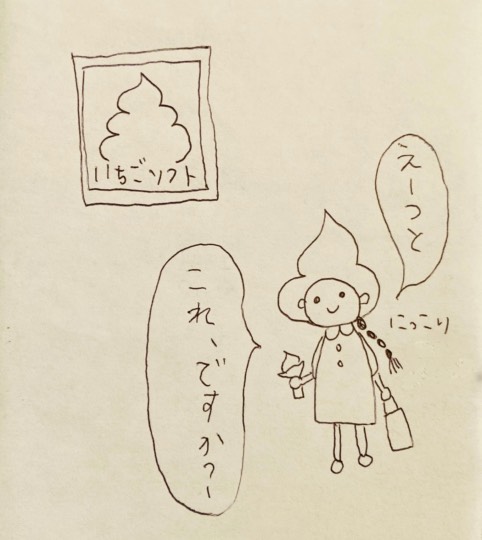 いちごソフト
えーっと
にっこり
これ、ですか？